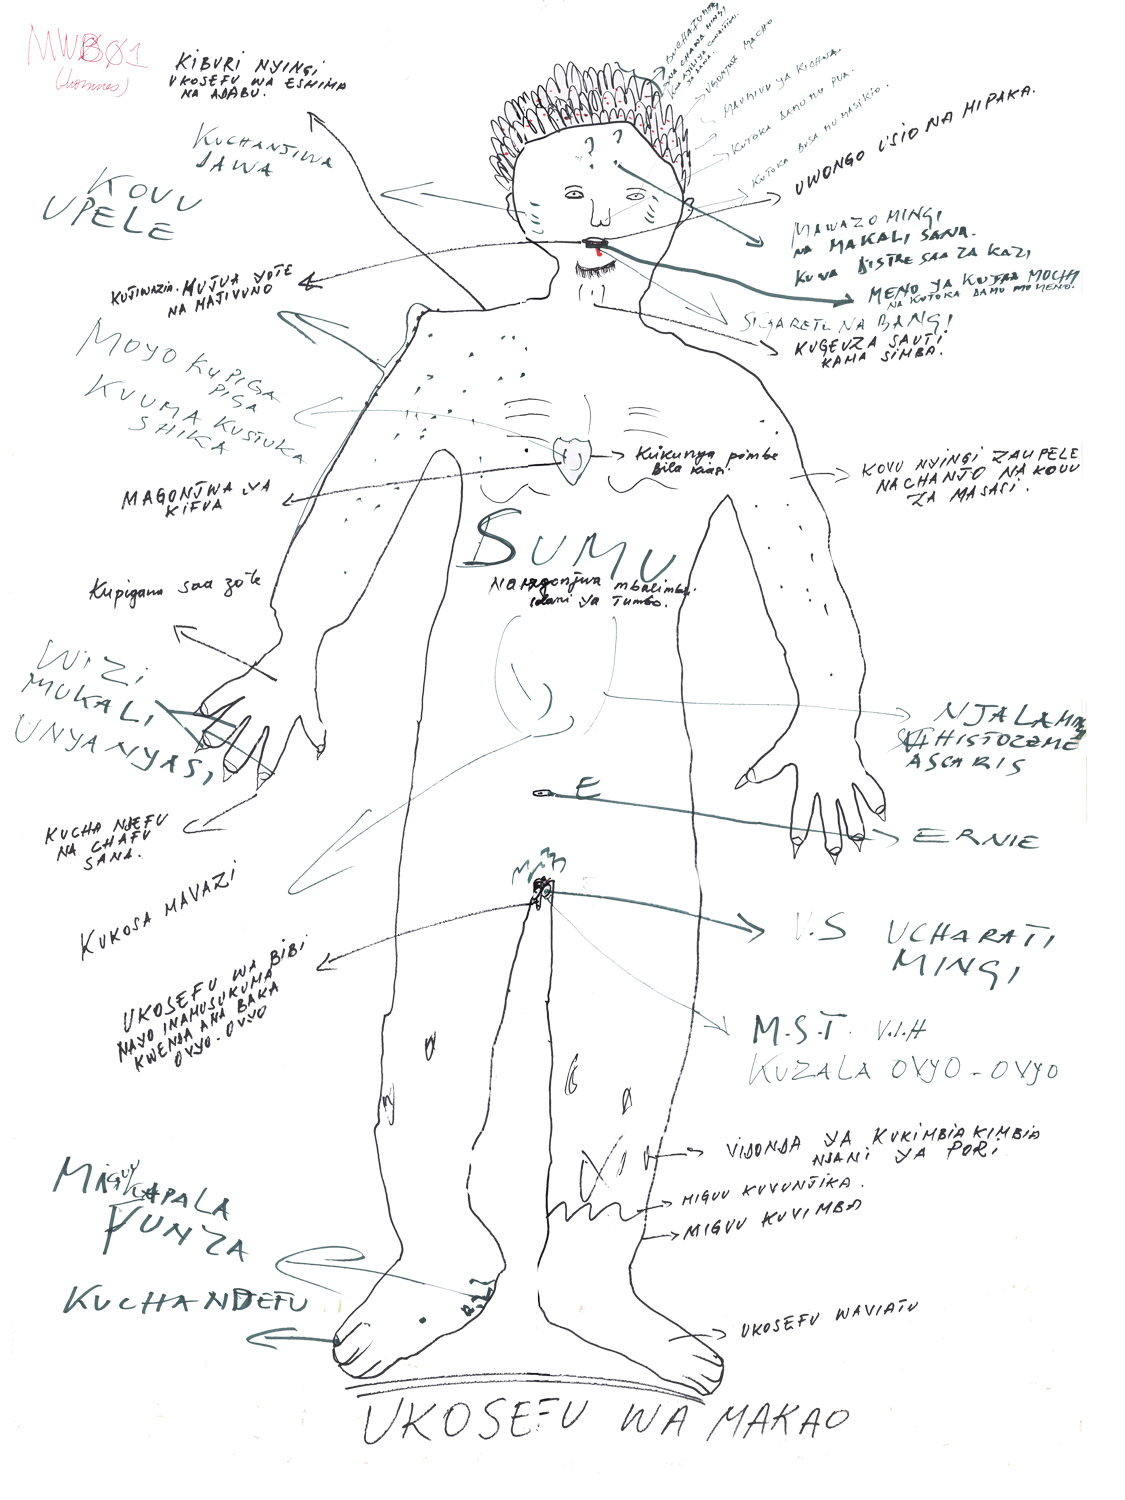 MWB01
(hommes)
KIBURI NYINGI
UKOSEFU WA ESHIMA
NA ADABU.
KUCHANJIWA
DAWA
KOVU
UPELE
KUJIWAZIA. MUJUA YOTE
NA MAJIVUNO
MOYO KUPIGA
PIGA
KUUMA KUSTUKA
SHIKA
MAGONJWA YA
KIFUA
Kupigana saa zote
WIZI
MUKALI
UNYANYASI
KUCHA NDEFU
NA CHAFU
SANA.
KUKOSA MAVAZI
UKOSEFU WA BIBI
NAYO INAMUSUKUMA
KWENDA ANA BAKA
OVYO-OVYO
MIGUU
KAPALA
FUNZA
KUCHA NDEFU
MACHO
MAVUVU YA KICHWA.
KUTOKA DAMU MU PUA.
KUTOKA BUSA MU MASIKIO.
UWONGO USIO NA MIPAKA.
? ?
MAWAZO MINGI
NA MAKALI SANA.
KUWA DISTRE SAA ZA KAZI
MENO YA KUJAA MOCHI
NA KUTOKA DAMU MO MENO.
SIGARETI NA BANGI
KUGEUZA SAUTI
KAMA SIMBA.
Kukunya pombe
Bila kiasi!
KOVU NYINGI ZA UPELE
NA CHANJO NA KOVU
ZA MASASI.
SUMU
Na magonjwa mbalimbali
ndani ya Tumbo.
NJALA
SHISTOZEME
ASCARIS
E
ERNIE
V.S UCHARATI
MINGI
M.S.T. V.I.H
KUZALA OVYO-OVYO
VIDONDA YA KUKIMBIA KIMBIA
NDANI YA PORI
MIGUU KUVUNJIKA.
MIGUU KUVIMBA
UKOSEFU WA VIATU
UKOSEFU WA MAKAO